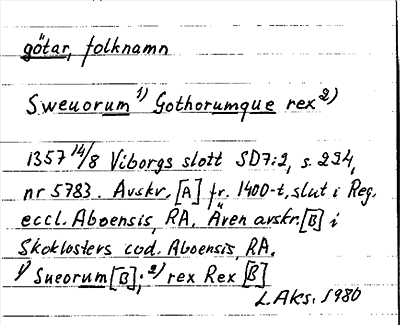 götar, folknamn
Sweuorum 1) Gothorumque rex 2)
1357 14/8 Viborgs slott SD7:2, s. 224,
nr 5783. Avskr. [A] fr. 1400-t, slut i Reg.
eccl. Aboensis, RA. Även avskr. [B] i
Skoklosters cod. Aboensis, RA.
1) Sueorum [B]; 2) rex Rex [B]
L. Aks. 1980